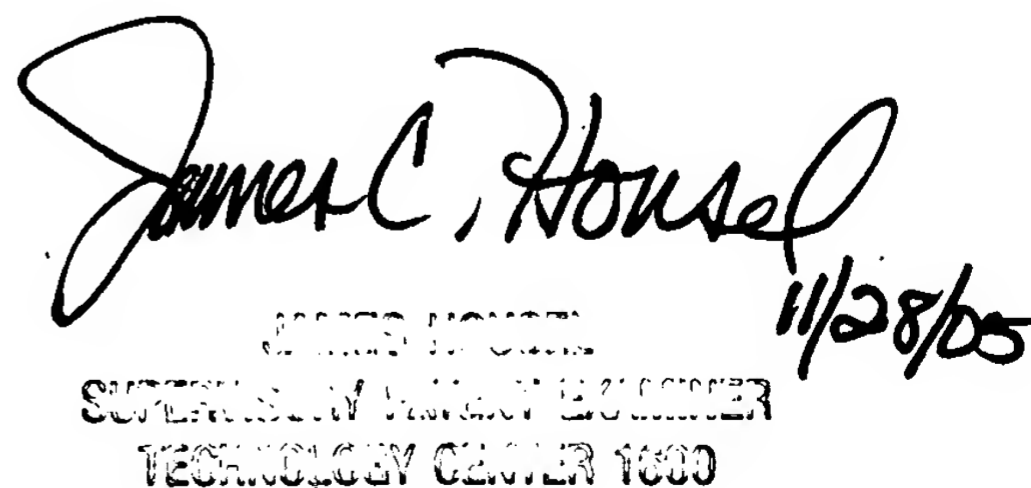 James C. Housel
11/28/05
JAMES HOUSEL
SUPERVISORY PATENT EXAMINER
TECHNOLOGY CENTER 1600